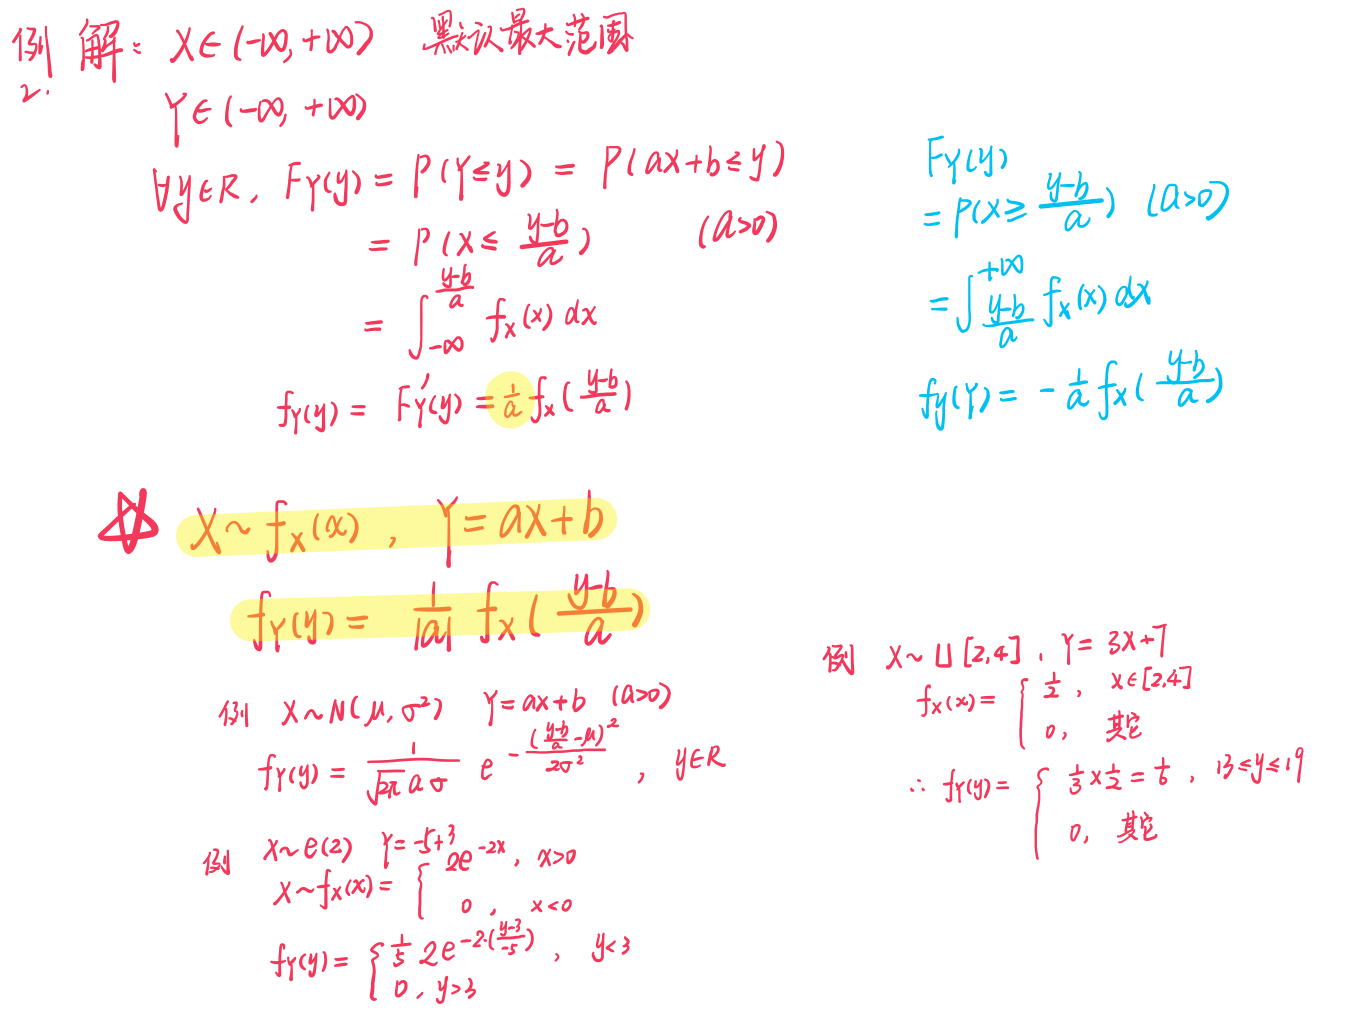 例2. 解: X∈(-∞, +∞) 默认最大范围
Y∈(-∞, +∞)
∀y∈R, F_Y(y) = P(Y≤y) = P(aX+b≤y)
= P(X≤ (y-b)/a) (a>0)
= ∫_{-∞}^{(y-b)/a} f_X(x) dx
f_Y(y) = F_Y'(y) = 1/a f_X((y-b)/a)
F_Y(y)
= P(X≥ (y-b)/a) (a>0)
= ∫_{(y-b)/a}^{+∞} f_X(x) dx
f_y(Y) = - 1/a f_X((y-b)/a)
☆ X~f_X(x), Y=aX+b
f_Y(y) = 1/|a| f_X((y-b)/a)
例 X~N(μ,σ²) Y=aX+b (a>0)
f_Y(y) = 1/(√2π aσ) e^{-((y-b)/a -μ)²/2σ²}, y∈R
例 X~e(2) Y=-5+3
X~f_X(x)= { 2e^{-2x}, x>0
0, x<0
f_Y(y)= { 1/5 2e^{-2·((y-3)/-5)}, y<3
0, y>3
例 X~U[2,4], Y=3X+7
f_X(x)= { 1/2, x∈[2,4]
0, 其它
∴ f_Y(y)= { 1/3×1/2=1/6, 13≤y≤19
0, 其它